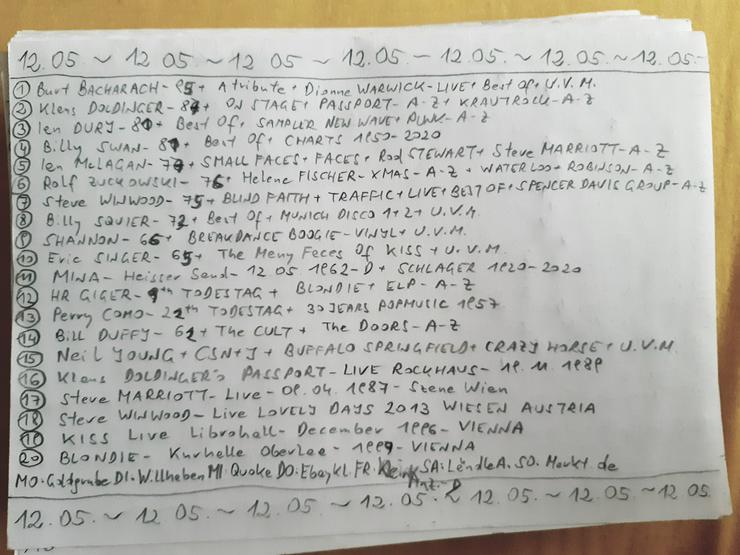 12.05.~12.05.~12 05~12.05.~12.05.~12.05.~12.05.-
① Burt BACHARACH-95+ A tribute+ Dionne WARWICK-LIVE+ Best Of+ U.V.M.
② Klaus DOLDINGER-87+ ON STAGE+ PASSPORT-A-Z+ KRAUTROCK-A-Z
③ Ian DURY-81+ Best Of+ SAMPLER NEW WAVE+ PUNK-A-Z
④ Billy SWAN-81+ Best Of+ CHARTS 1950-2020
⑤ Ian McLAGAN-78+ SMALL FACES+ FACES+ Rod STEWART+ Steve MARRIOTT-A-Z
⑥ Rolf ZUCKOWSKI-76+ Helene FISCHER-XMAS-A-Z+ WATERLOO+ ROBINSON-A-Z
⑦ Steve WINWOOD-75+ BLIND FAITH+ TRAFFIC+ LIVE+ BEST OF+ SPENCER DAVIS GROUP-A-Z
⑧ Billy SQUIER-73+ Best Of+ MUNICH DISCO 1+2+ U.V.M.
⑨ SHANNON-66+ BREAKDANCE BOOGIE-VINYL+ U.V.M.
⑩ Eric SINGER-65+ The Meny Feces Of KISS+ U.V.M.
⑪ MINA-Heisser Sand-12 05 1962-D+ SCHLAGER 1920-2020
⑫ HR GIGER-9th TODESTAG+ BLONDIE+ ELP-A-Z
⑬ Perry COMO-22th TODESTAG+ 30 JEARS POPMUSIC 1957
⑭ Bill DUFFY-62+ The CULT+ The DOORS-A-Z
⑮ Neil YOUNG+ CSN+Y+ BUFFALO SPRINGFIELD+ CRAZY HORSE+ U.V.M.
⑯ Klaus DOLDINGER's PASSPORT-LIVE ROCKHAUS-19.11.1989
⑰ Steve MARRIOTT-Live-09.04.1987-Szene Wien
⑱ Steve WINWOOD-Live LOVELY DAYS 2013 WIESEN AUSTRIA
⑲ KISS Live Librohall-December 1996-VIENNA
⑳ BLONDIE-Kurhalle Oberlaa-1999-VIENNA
MO.Goldgrube DI.Willheben MI.Quoke DO.Ebaykl FR.Klein SA.LändleA.SO.Markt.de
Anz.-D
12.05.~12 05.~12.05.~12.05.~12.05.~12.05.~12.05.